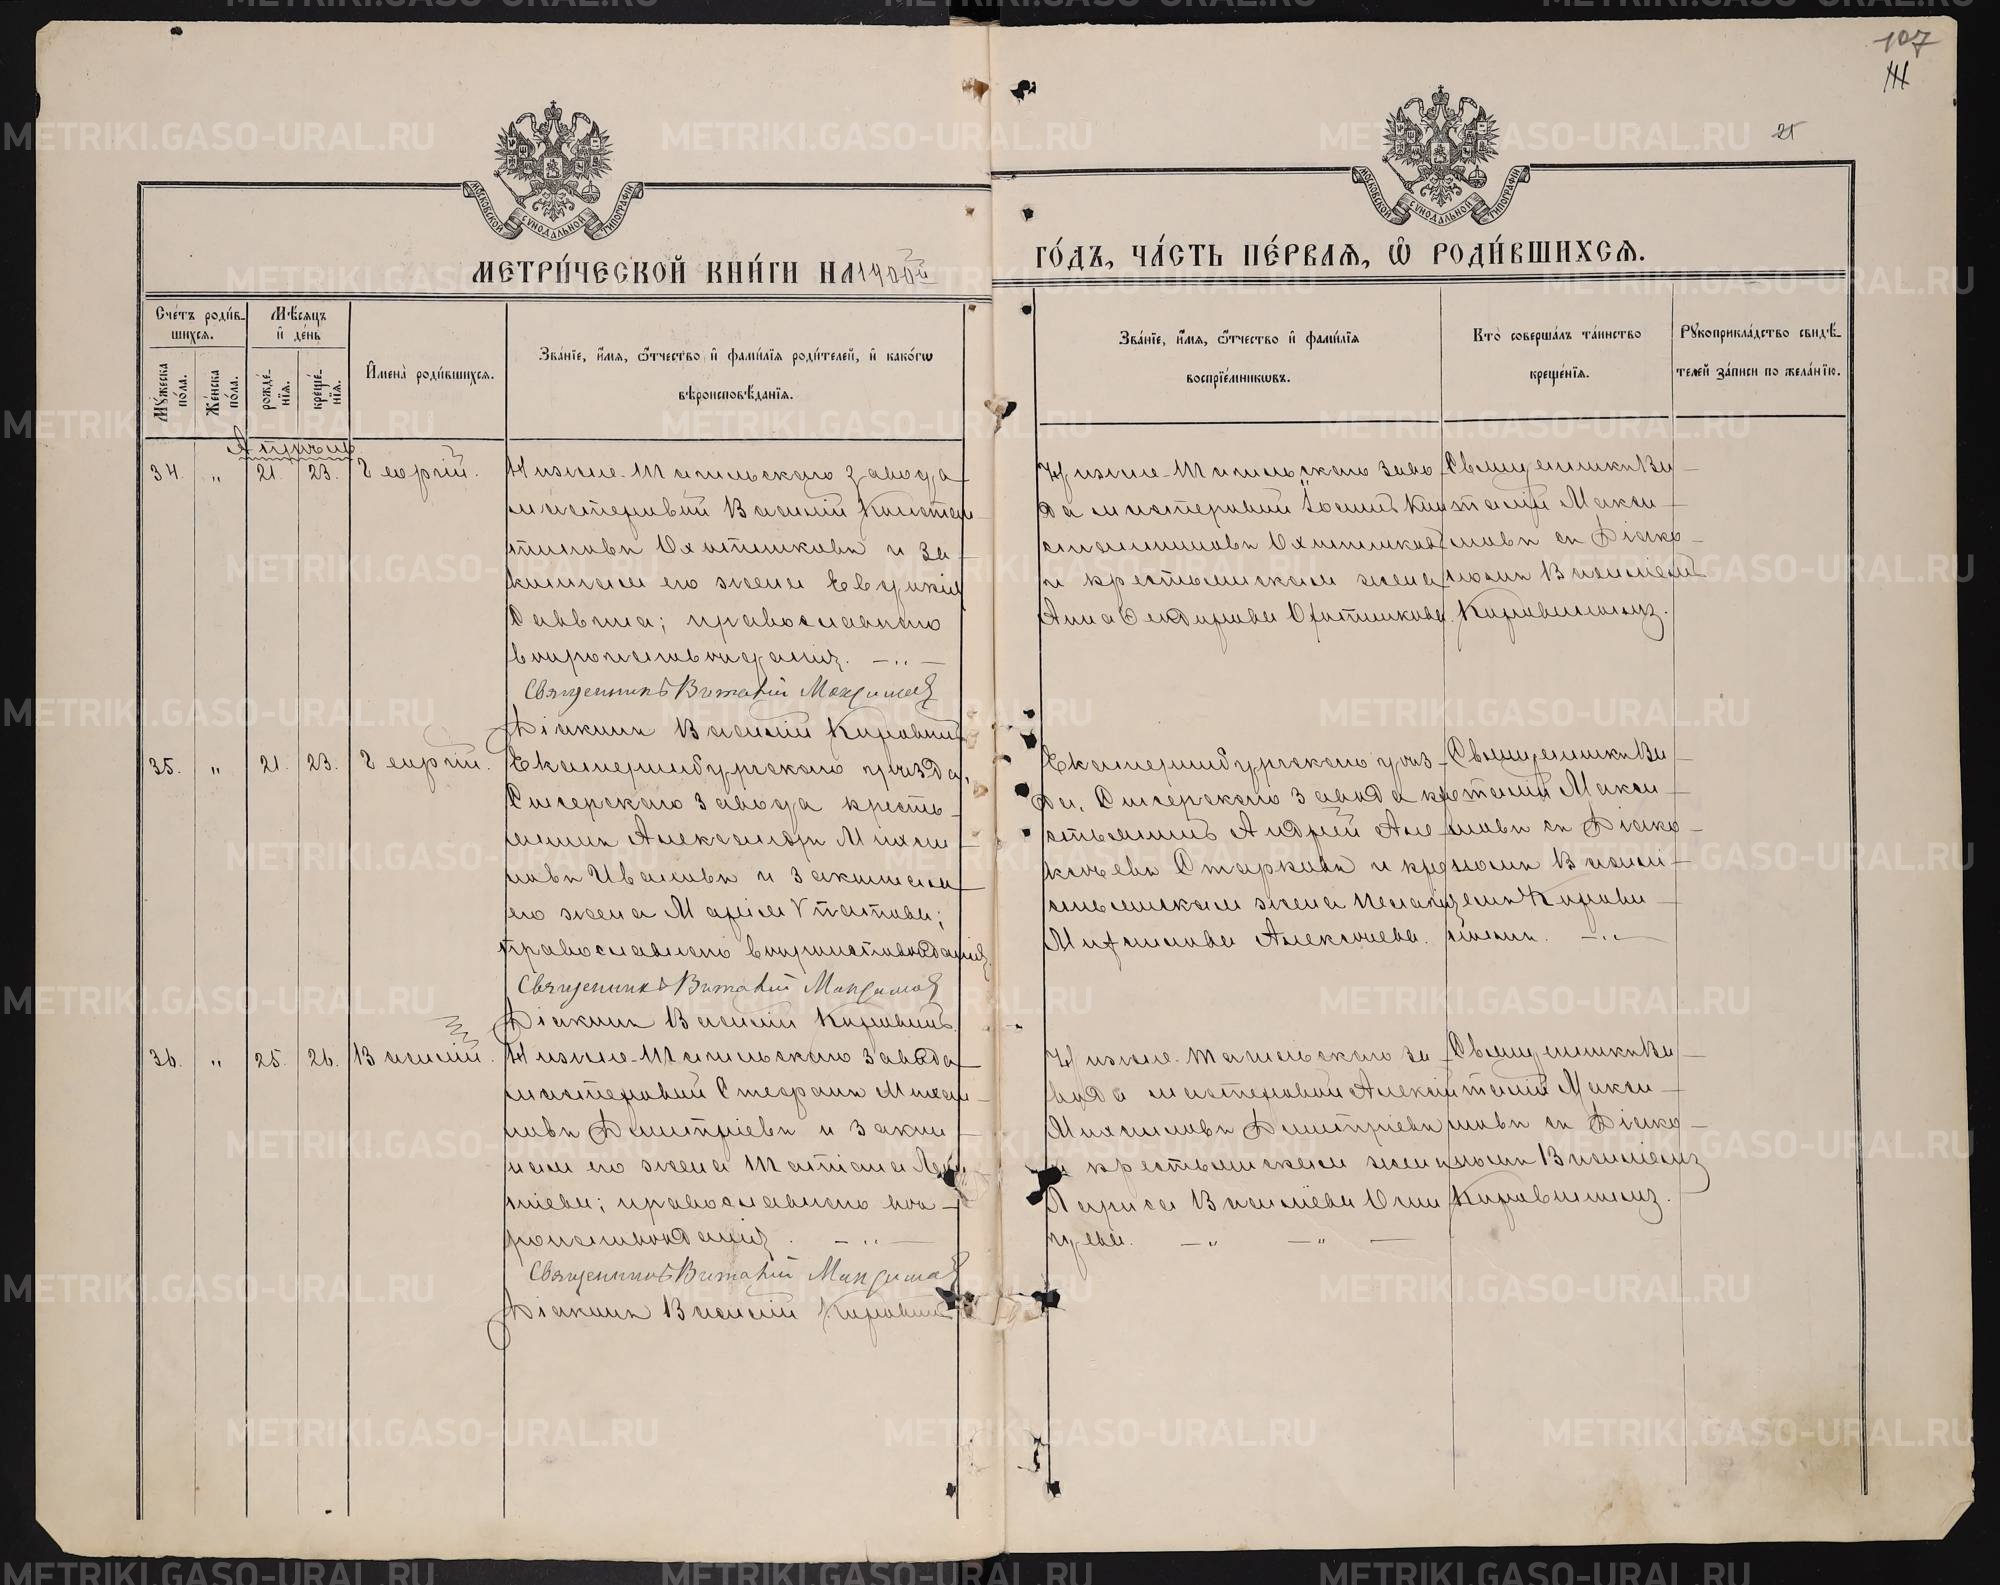 107
25
МОСКОВСКОЙ СУНОДАЛЬНОЙ ТИПОГРАФІИ
МОСКОВСКОЙ СУНОДАЛЬНОЙ ТИПОГРАФІИ
МЕТРИ́ЧЕСКОЙ КНИ́ГИ НА 1900й
ГО́ДЪ, ЧА́СТЬ ПЕ́РВАЯ, Ѡ РОДИ́ВШИХСЯ.
Сче́тъ роди́в-
шихся.
Мꙋ́жеска по́ла.
Же́нска по́ла.
Мѣ́сяцъ
и҆ де́нь
рожде́-
нїя.
креще́-
нїя.
И҆мена̀ роди́вшихся.
Зва́нїе, и҆́мя, ѻ҆́тчество и҆ фами́лїя роди́телей, и҆ како́гѡ
вѣроисповѣ́данїя.
Зва́нїе, и҆́мя, ѻ҆́тчество и҆ фами́лїя
воспрїе́мникѡвъ.
Кто̀ соверша́лъ та́инство
креще́нїя.
Рꙋкоприкла́дство свидѣ́-
телей за́писи по жела́нїю.
Апрѣль
34. „ 21. 23. Георгій.
Нижне-Тагильскаго завода
мастеровой Василій Констан-
тиновъ Охотниковъ и за-
конная его жена Евдокія
Даввна; православнаго
вѣроисповѣданія. — „ —
Священникъ Виталій Максимовъ
Діаконъ Василій
Нижне-Тагильскаго заво-
да мастеровой Іосифъ Кон-
стантиновъ Охотниковъ
и крестьянская жена
Анна Охотникова.
Священникъ Ви-
талій Макси-
мовъ съ діако-
номъ Василіемъ
35. „ 21. 23. Георгій.
Екатеринбургскаго уѣзда,
Сысерскаго завода кресть-
янинъ Александръ Михаи-
ловъ Ивановъ и законная
его жена Марія
православнаго вѣроисповѣданія.
Священникъ Виталій Максимовъ
Діаконъ Василій
Екатеринбургскаго уѣз-
да, Сысерскаго завода кре-
стьянинъ Андрей Але-
ксѣевъ Старковъ и кре-
стьянская жена
Михаилова Алексѣева.
Священникъ Ви-
талій Макси-
мовъ съ діако-
номъ Васил-
36. „ 25. 26. Василій.
Нижне-Тагильскаго завода
мастеровой Стефанъ Михаи-
ловъ Димитріевъ и закон-
ная его жена Татіана
православнаго вѣ-
роисповѣданія. — „ —
Священникъ Виталій Максимовъ
Діаконъ Василій
Нижне-Тагильскаго за-
вода мастеровой Алексѣй
Михаиловъ Димитріевъ
и крестьянская жена
Лариса Васильева
Священникъ Ви-
талій Макси-
мовъ съ діако-
номъ Василіемъ
METRIKI.GASO-URAL.RU